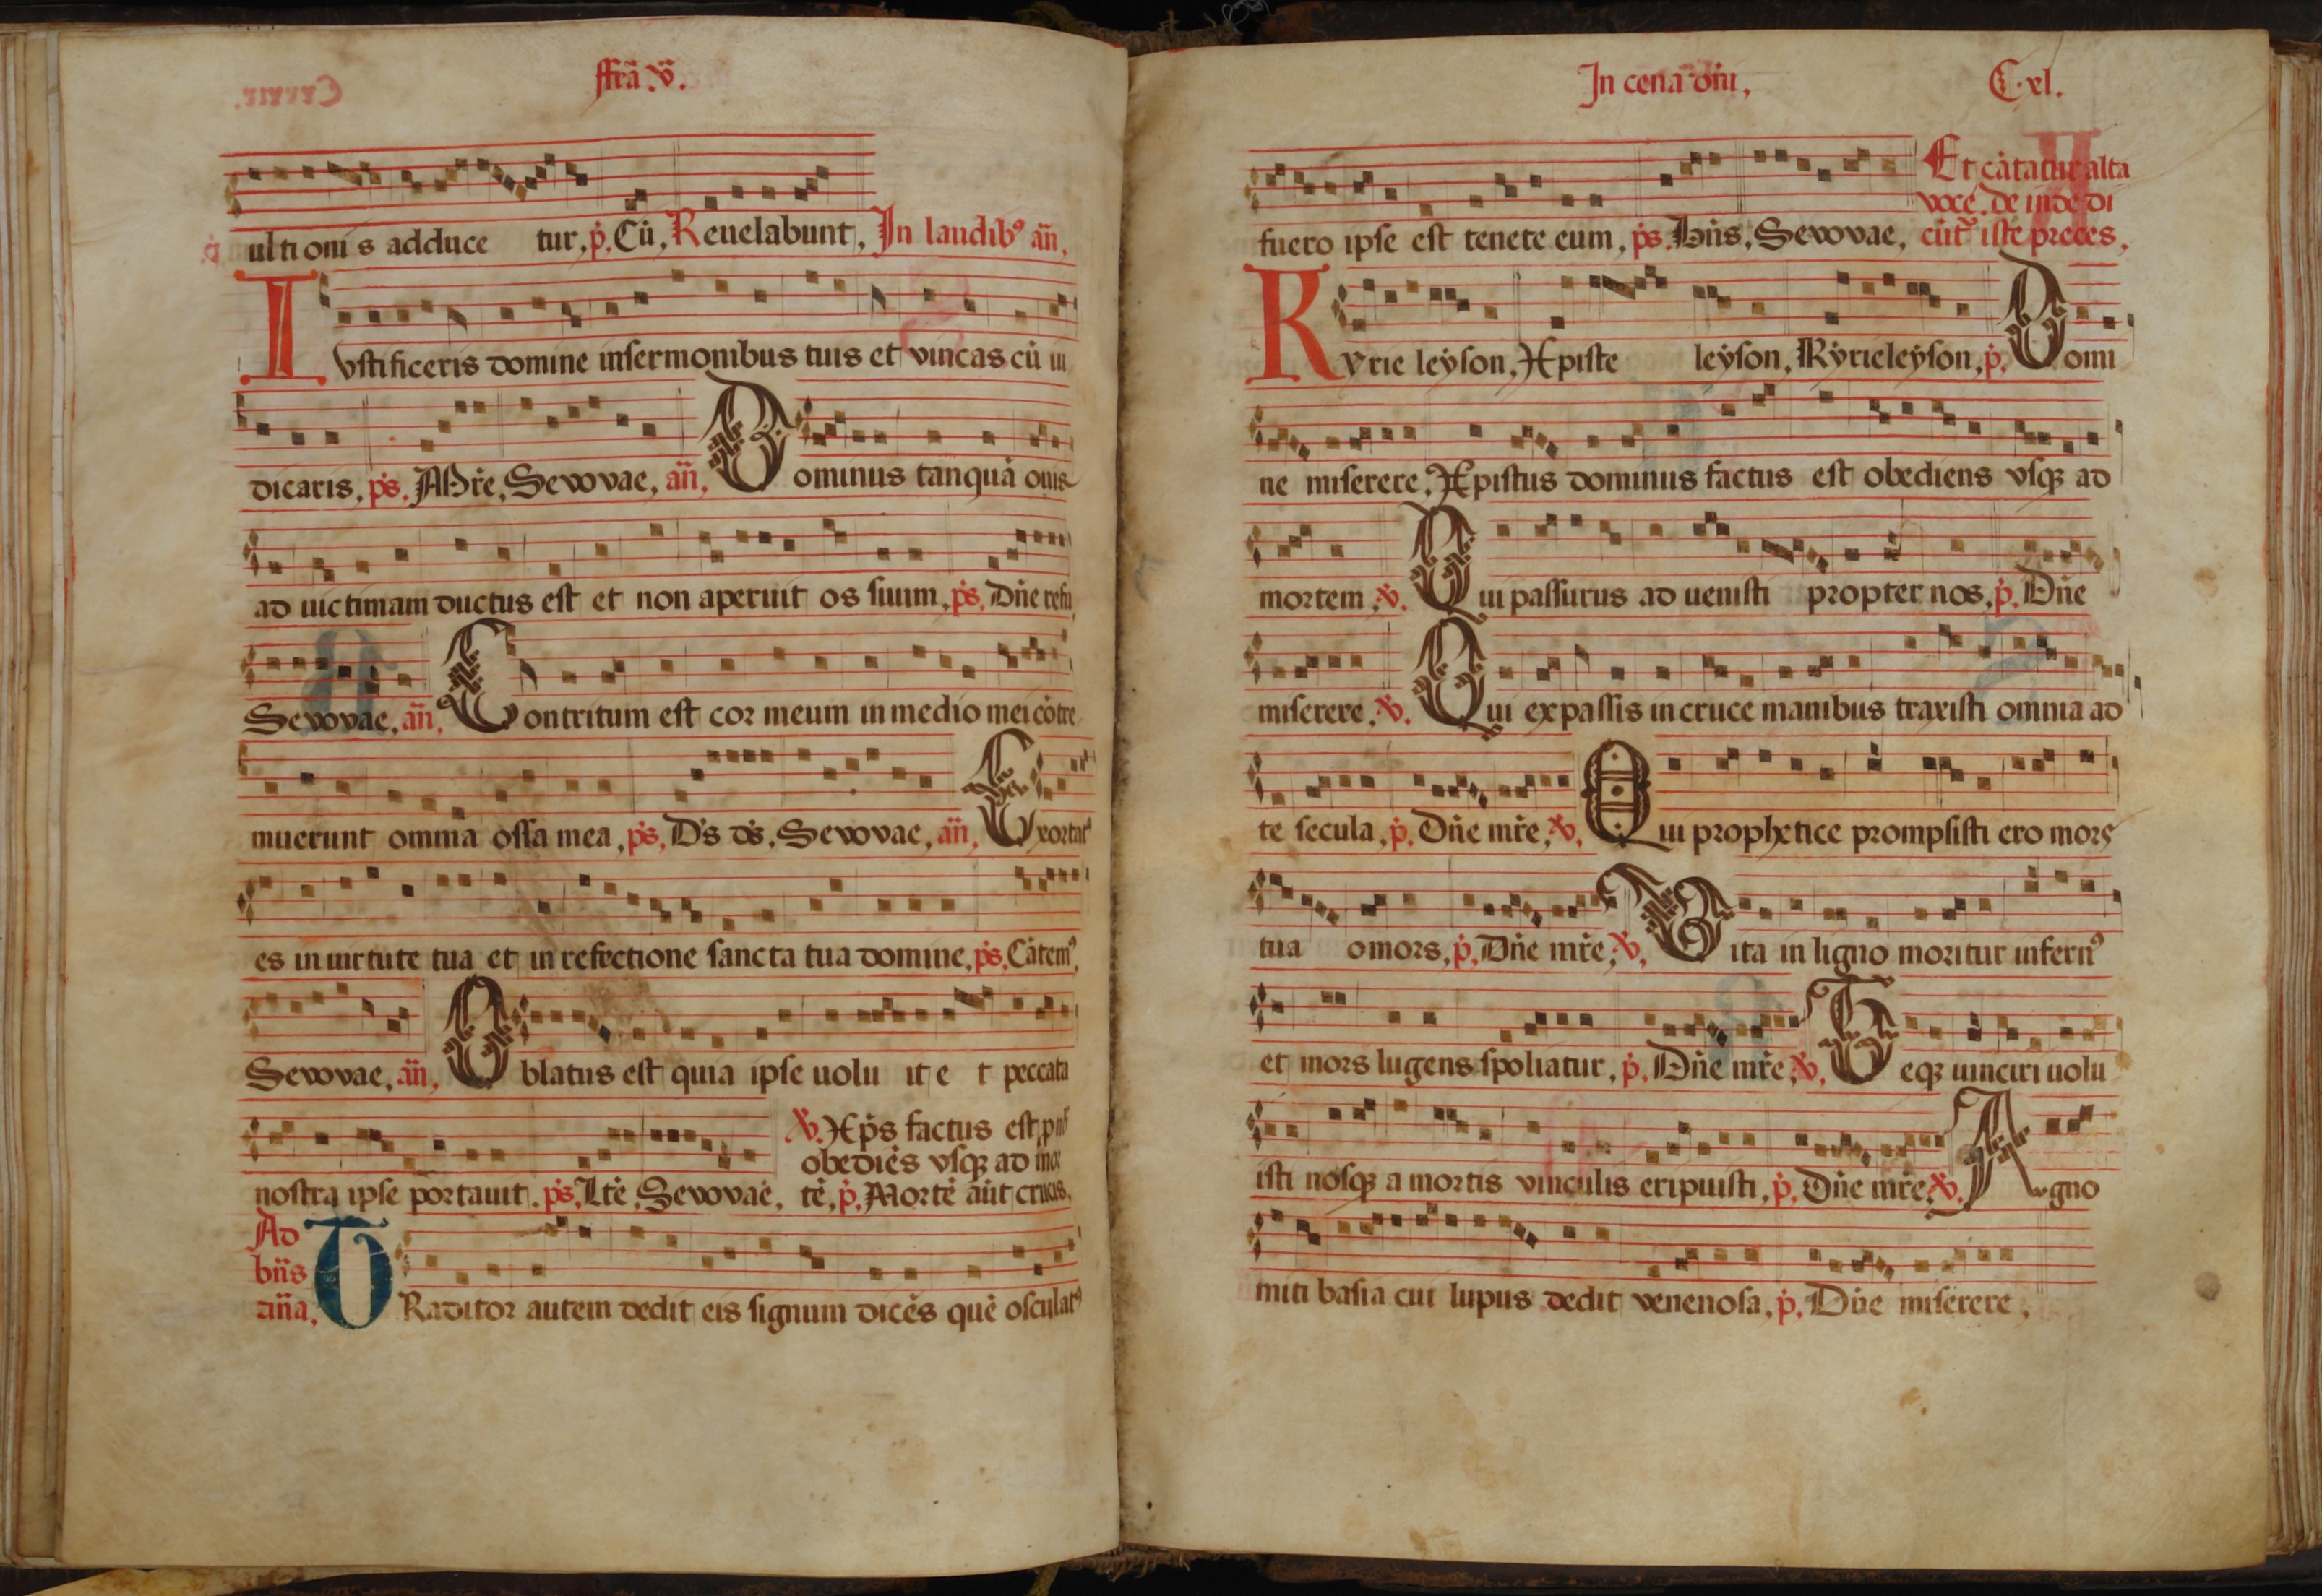 ffrã .v̈.
ultionis adduce tur, p̓. Cũ, Reuelabunt, In laudib⁹ añ,
Ivstificeris domine insermonibus tuis et vincas cũ iu
dicaris, ps̓. Mr̃e, Sevovae, añ, Dominus tanquã ouis
ad uictimam ductus est et non aperuit os suum, ps̓, Dñe refu
Sevovae, añ, Contritum est cor meum in medio mei cõtre
muerunt omnia ossa mea, ps̓, D̓s d̓s, Sevovae, añ, Exortat⁹
es in uirtute tua et in refectione sancta tua domine, ps̓, Cãtem⁹,
Sevovae, añ, Oblatus est quia ipse uolu it e t peccata
v̓. Xp̃s factus est, p nob̃
obediẽs vsqꝫ ad mor
nostra ipse portauit. ps̓, Ltẽ, Sevovae, tẽ, p̓. Mortẽ aũt crucis,
Ad
bñs
añа, TRaditor autem dedit eis signum dicẽs quẽ osculat⁹
In cena dñi, C.xl.
Et cãtatur alta
voce. de inde di
fuero ipse est tenete eum, ps̓. Bñs, Sevovae, cũt̃ iste preces,
Kyrie leyson, Xpiste leyson, Kyrieleyson, p̓. Domi
ne miserere, Xpistus dominus factus est obediens vsqꝫ ad
mortem, v̓. Qui passurus ad uenisti propter nos, p̓. Dñe
miserere, v̓. Qui expassis in cruce manibus traxisti omnia ad
te secula, p̓. Dñe mr̃e, v̓, Qui prophetice prompsisti ero mors
tua omors, p̓, Dñe mr̃e, v̓, Vita in ligno moritur infern⁹
et mors lugens spoliatur, p̓. Dñe mr̃e, v̓, Teqꝫ uinciri uolu
isti nosqꝫ a mortis vinculis eripuisti, p̓, Dñe mr̃e, v̓. Agno
miti basia cui lupus dedit venenosa, p̓. Dñe miserere,